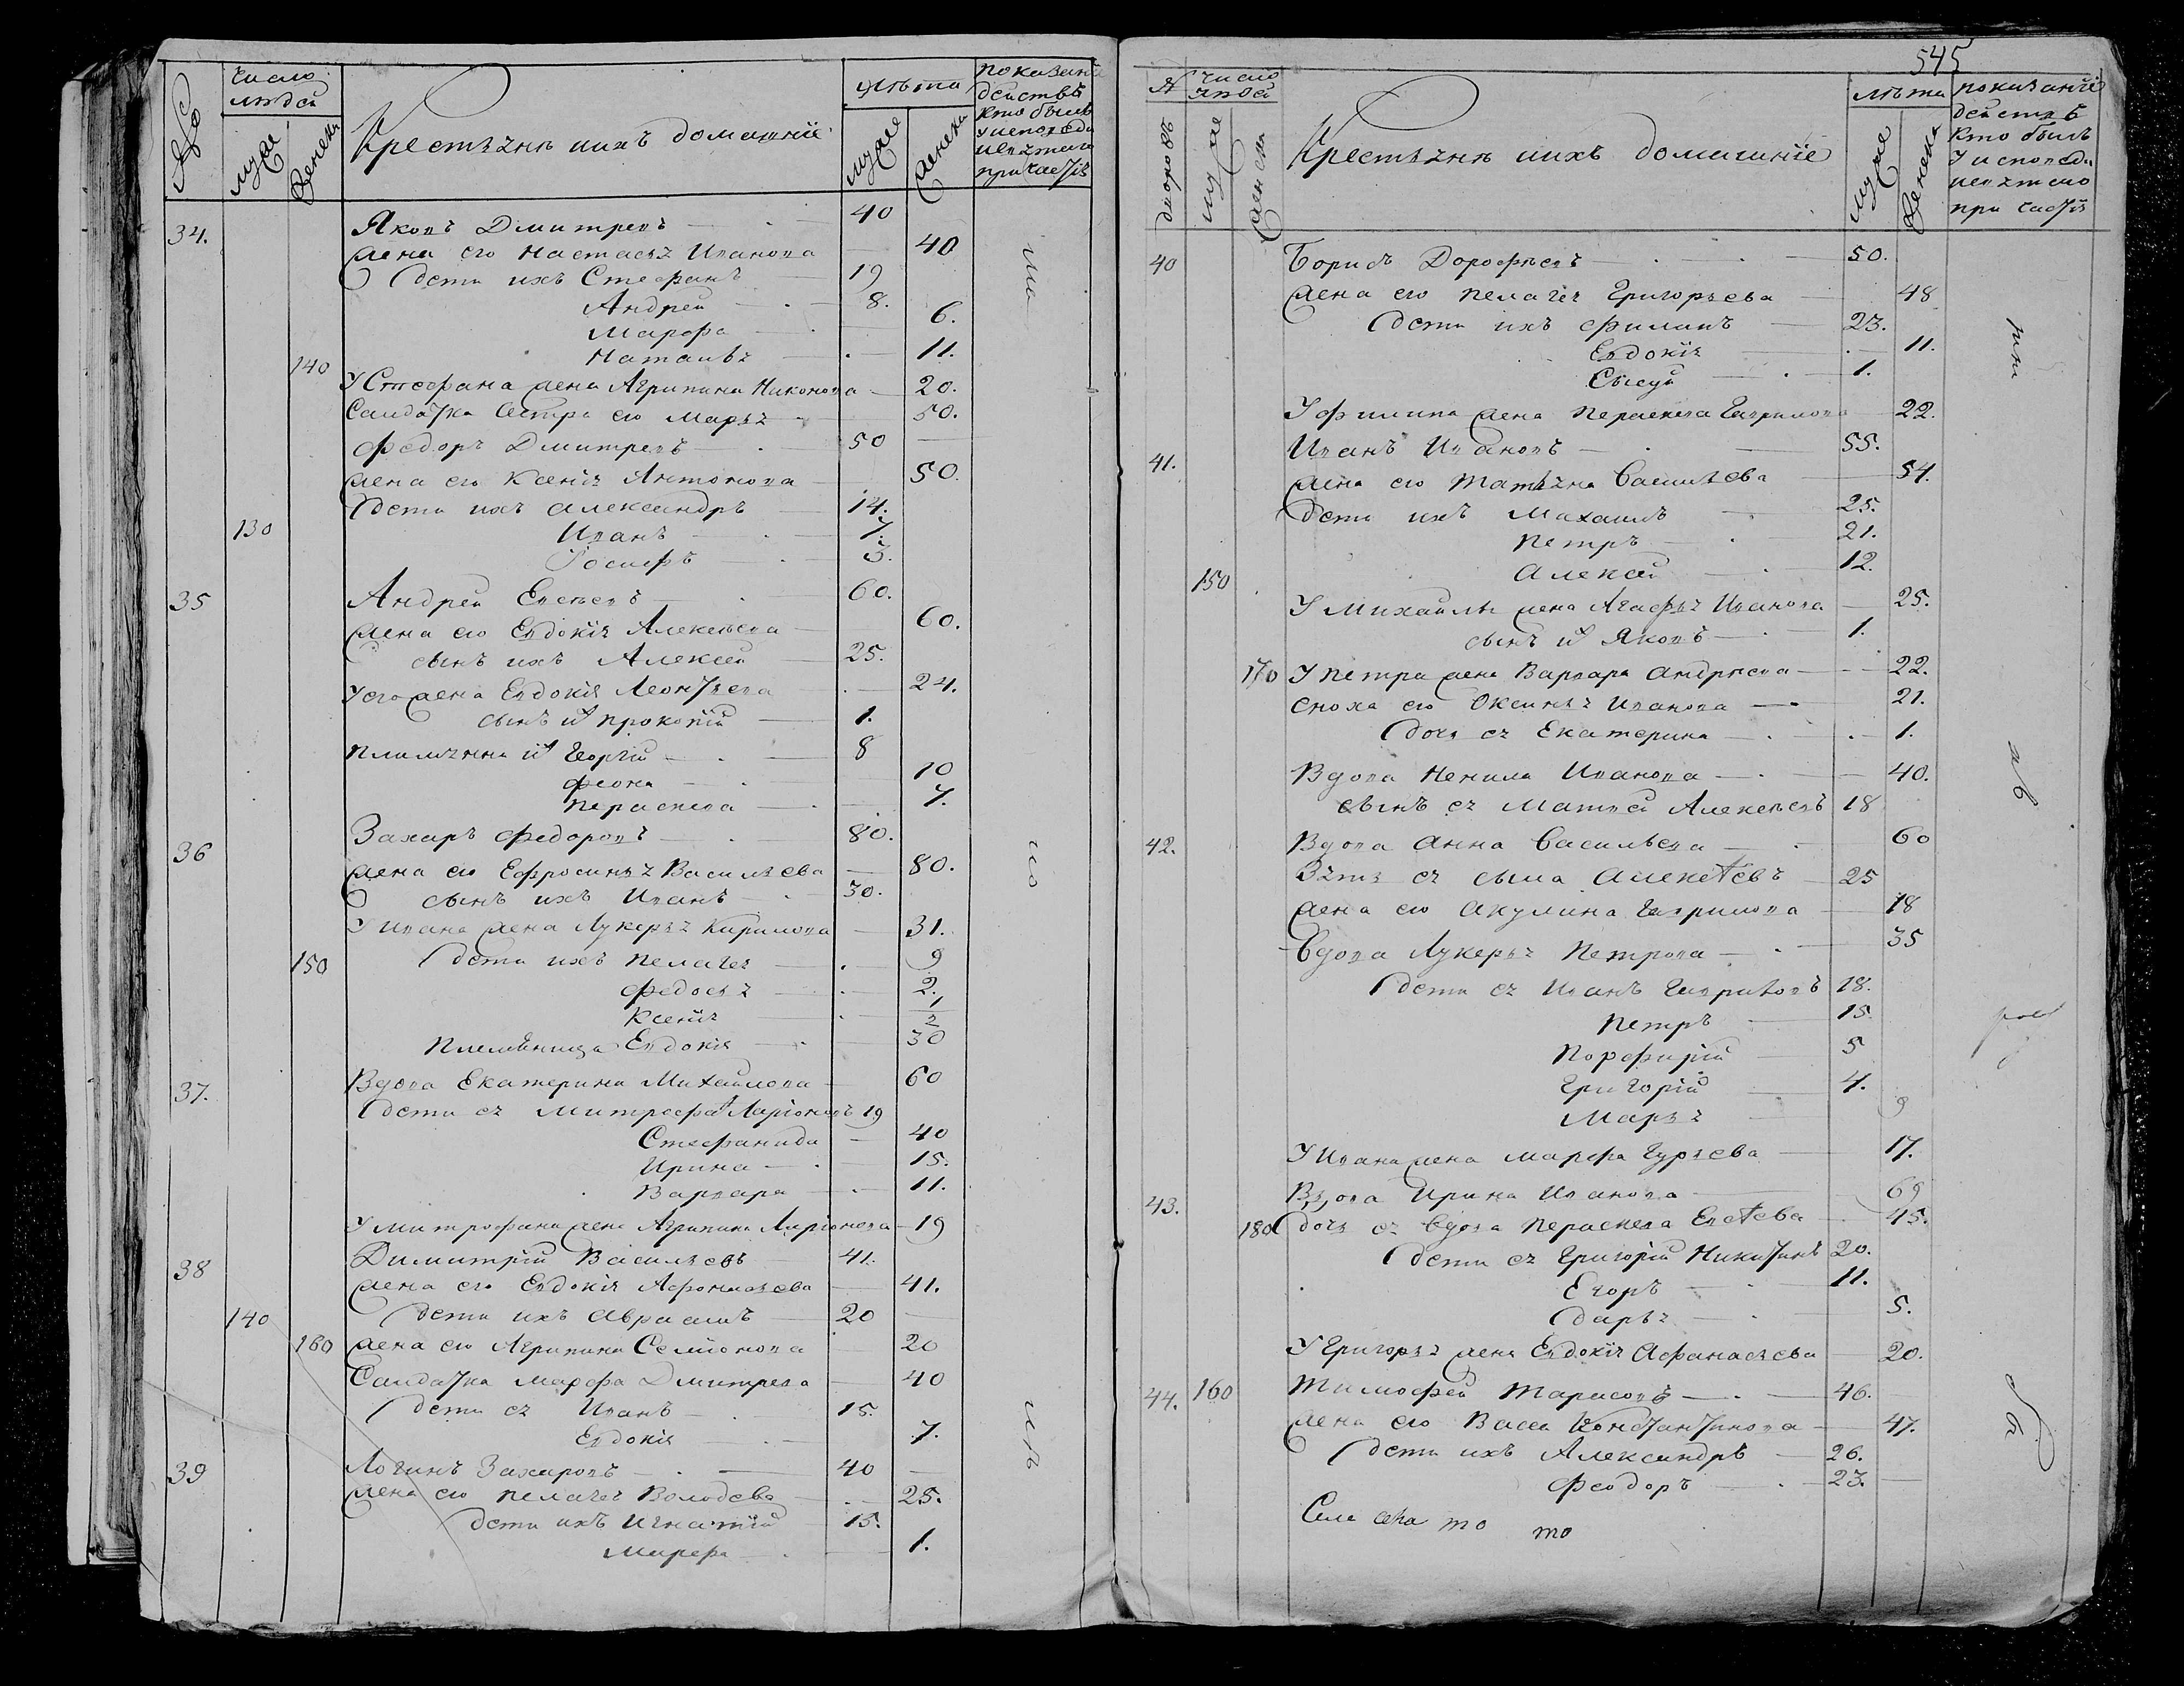 №
число людей
муже
женска
Крестьяня ихъ домашніе
лѣта
муже
женска
показаніе действъ кто былъ у исповеди и святаго причастія
34. Яковъ Дмитревъ 40
жена его Настасья Иванова 40
дети ихъ Стефанъ 19
Андрей 8.
Марфа 6.
140 Наталья 11.
У Стефана жена Агрипина Никонова 20.
Салдатка сестра его Марья 50.
Федоръ Дмитревъ 50
жена его Ксенія Антонова 50.
дети ихъ Александръ 14.
130 Иванъ 7.
Іосифъ 3.
35 Андрей Евсѣевъ 60.
жена его Евдокія Алексѣева 60.
сынъ ихъ Алексей 25.
У его жена Евдокія Леонтьева 24.
сынъ их Прокопій 1.
Племянни их Георгій 8
Феона 10
Параскева 7.
36 Захаръ Федоровъ 80.
жена его Ефросинья Васильева 80.
сынъ ихъ Иванъ 30.
У Ивана жена Лукерья Кирилова 31.
150 дети ихъ Пелагея 9
Федосья 2.
Ксенія 1/2
Племянница Евдокія 30
37. Вдова Екатерина Михайлова 60
дети ея Митрофа Ларіоновъ 19
Стефанида 40
Ирина 15.
Варвара 11.
У Митрофана жена Агрипина Ларіонова 19
38 Димитрій Васильевъ 41.
жена его Евдокія Афонасьева 41.
140 дети ихъ Авраамъ 20
160 жена его Агрипина Семіонова 20
Салдатка Марфа Дмитрева 40
дети ея Иванъ 15.
Евдокія 7.
39 Логинъ Захаровъ 40
жена его Пелагея 25.
дети ихъ Игнатій 15.
Марфа 1.
545
№
число людей
дворовъ
муже
женска
Крестьяня ихъ домашніе
лѣта
муже
женска
показаніе действъ кто былъ у исповеди и святаго причастія
40 Борисъ Дорофѣевъ 50.
жена его Пелагея Григорьева 48
дети ихъ Филипъ 23.
Евдокія 11.
Сысуй 1.
У Филипа жена Параскева Гаврилова 22.
41. Иванъ Ивановъ 55.
жена его Татьяна Васильева 54.
дети ихъ Михаилъ 25.
Петръ 21.
150 Алексей 12.
У Михайлы жена Агафья Иванова 25.
сынъ их Яковъ 1.
170 У Петра жена Варвара Андрѣева 22.
сноха его Оксинья Иванова 21.
дочь ея Екатерина 1.
Вдова Ненила Иванова 40.
сынъ ея Матвей Алексѣевъ 18
42. Вдова Анна Васильева 60
Зять ея Алексѣевъ 25
жена его Акулина Гаврилова 18
Вдова Лукерья Петрова 35
дети ея Иванъ Гавриловъ 18.
Петръ 15
Порфирій 5
Григорій 4.
Марья 9
У Ивана жена Марфа Гурьева 17.
43. Вдова Ирина Иванова 69
180 дочь ея вдова Параскева Евсѣева 45.
дети ея Григорій Никитинъ 20.
Егоръ 11.
Дарья 5.
У Григорья жена Евдокія Афанасьева 20.
44. 160 Тимофей Тарасовъ 46.
жена его Васса Константинова 47.
дети ихъ Александръ 26.
Феодоръ 23.